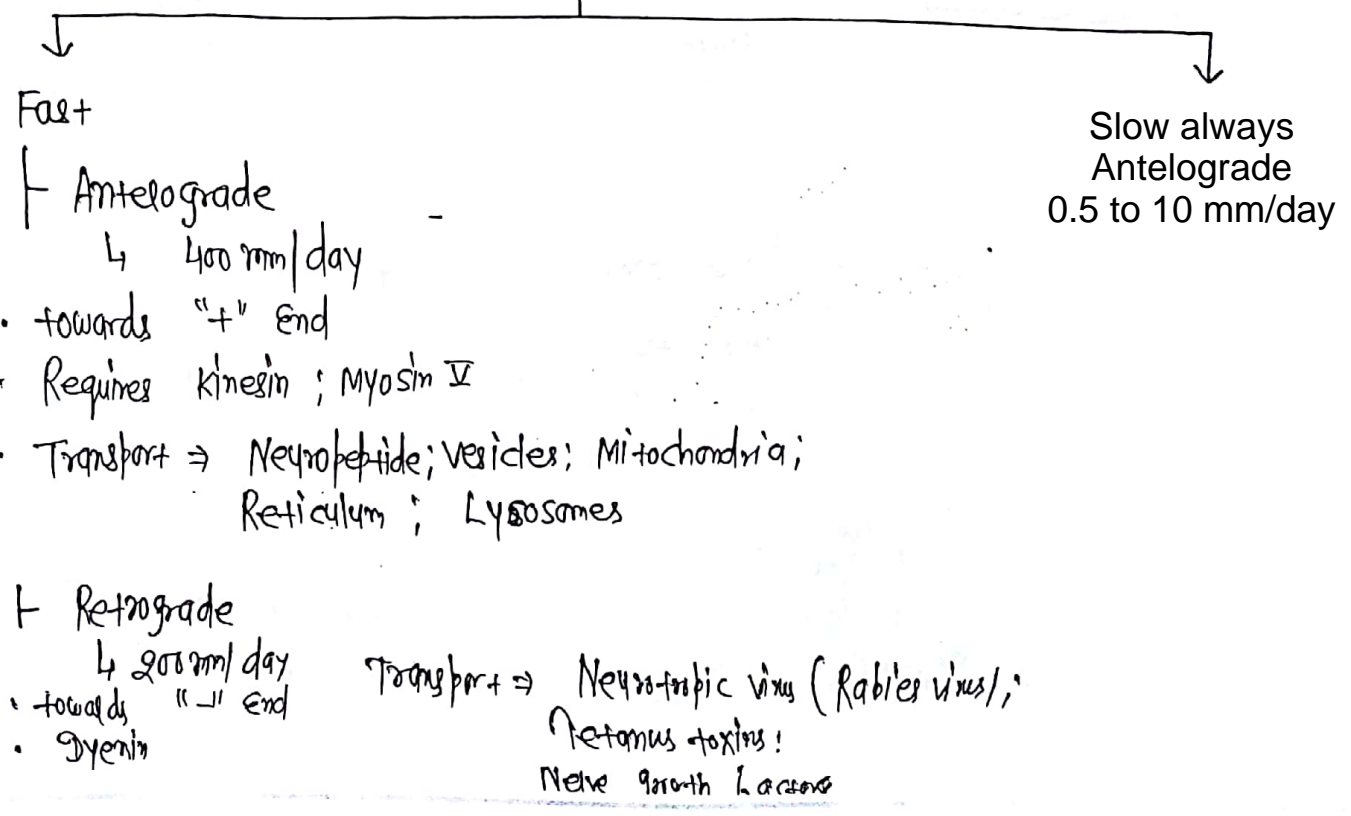 Fast
Anterograde
↳ 400 mm/day
• towards "+" End
• Requires Kinesin ; Myosin V
• Transport ⇒ Neuropeptide; Vesicles; Mitochondria;
Reticulum ; Lysosomes
Retrograde
↳ 200 mm/day
• towards "-" End
• Dyenin
Transport ⇒ Neurotropic virus (Rabies virus);
Tetanus toxins;
Nerve growth
Slow always
Antelograde
0.5 to 10 mm/day